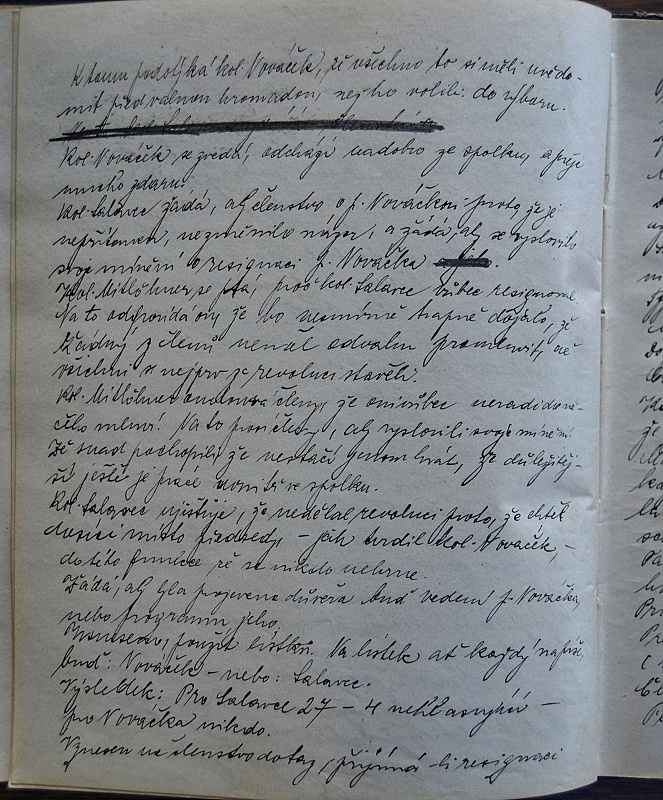 K tomu podotýká kol. Nováček, že všechno to si měli uvědo-
mit před valnou hromadou, než ho volili do výboru.
Kol. Nováček se zvedá, odchází nadobro ze spolku, a přeje
mnoho zdaru.
Kol. Salavec žádá, aby členstvo o p. Nováčkovi proto, že je
nepřítomen, nezměnilo názor, a žádá, aby se vyslovilo
svoje mínění o resignaci p. Nováčka
Kol. Mitlöhner se ptá, proč kol. Salavec vůbec resignoval.
Na to odpovídá on, že ho nesmírně trapně dojalo, že
žádný z členů neměl odvahu promluvit, ač
všichni se nejprv za revoluci stavěli.
Kol. Mitlöhner členy, že oni vůbec neradi do ně-
čeho mluví. Na to prosí členy, aby vyslovili svoje mínění.
Že snad pochopili že nestačí jenom hrát, že důležitěj-
ší ještě je práce uvnitř ve spolku.
Kol. Salavec ujišťuje, že nedělal revoluci proto, že chtěl
docíliti místo předsedy, – jak tvrdil kol. Nováček, –
do této funkce že se nikdo nehrne.
Žádá, aby byla projevena důvěra buď vedení p. Nováčka,
nebo programu jeho.
použít lístků. Na lístek ať každý napíše,
buď: Nováček – nebo: Salavec.
Výsledek: Pro Salavce 27 – 4 nehlasující –
pro Nováčka nikdo.
Vznesen na členstvo dotaz, přijímá-li resignaci